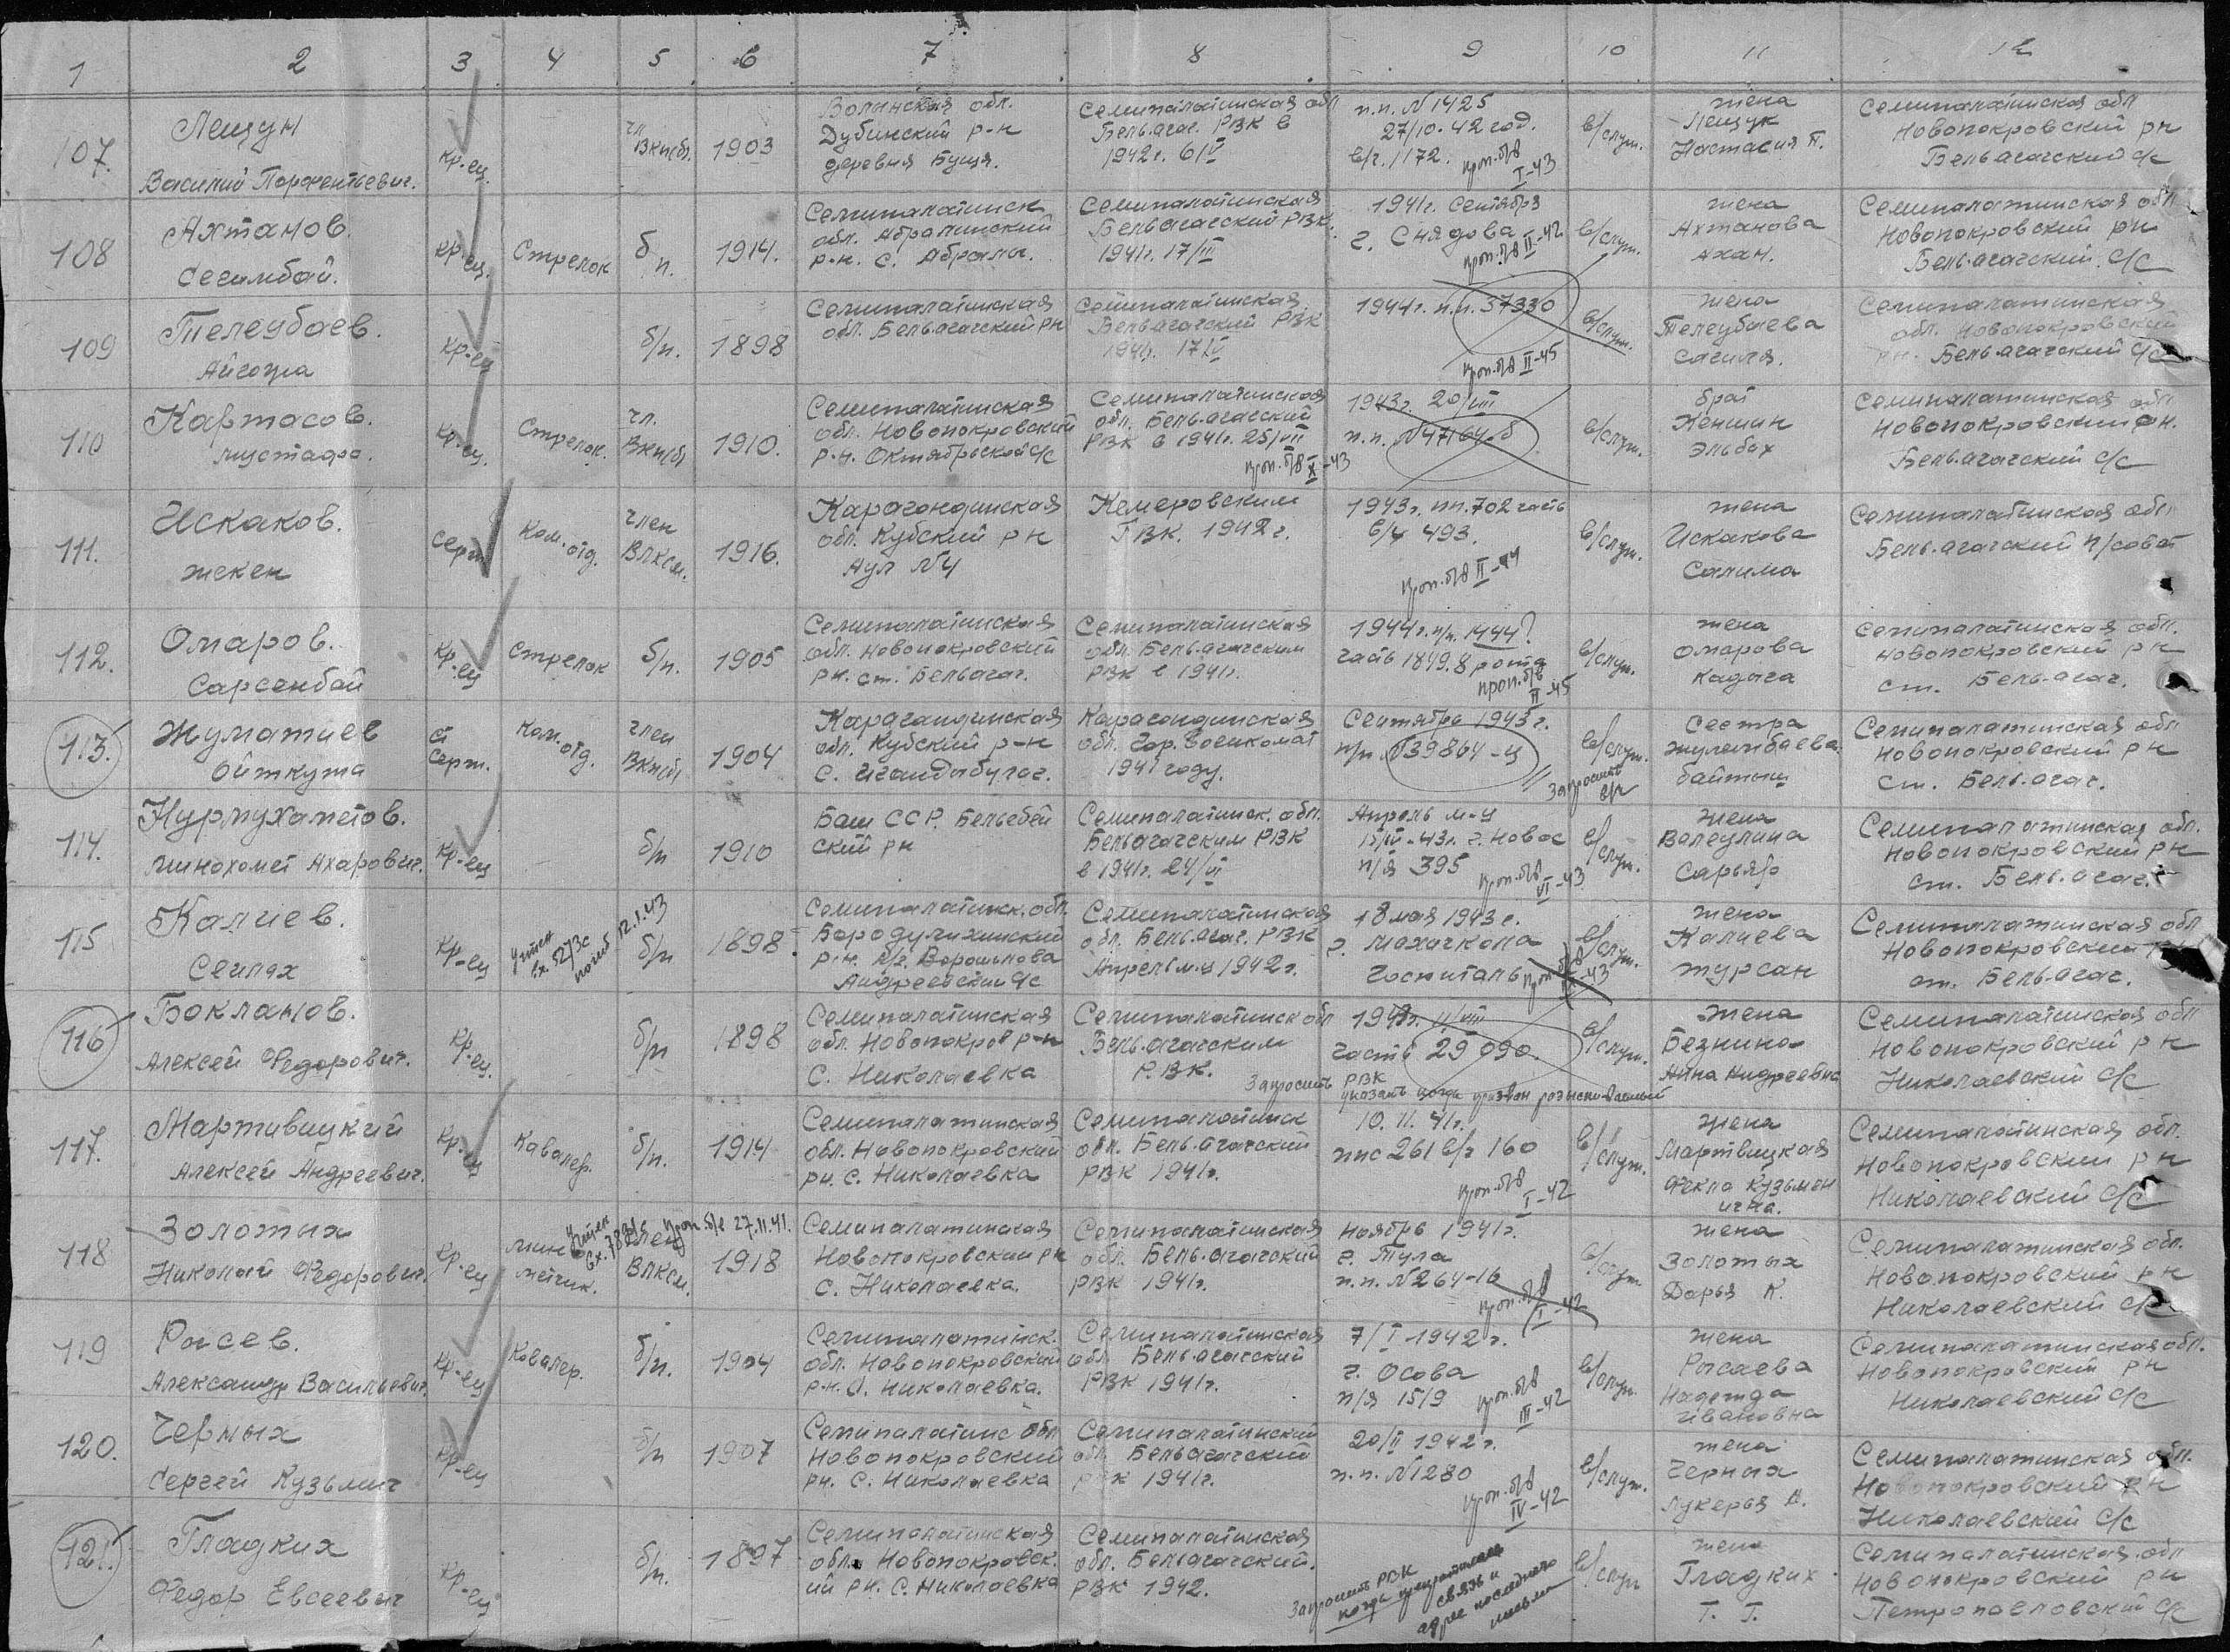 1 2 3 4 5 6 7 8 9 10 11 12
107.
Лещун
Василий Порфентьевич.
кр-ец.
чл
ВКП(б).
1903
Волынская обл.
Дубинский р-н
деревня Буща.
Семипалатинская обл
Бель-агач. РВК в
1942г. 6/V
п.п. N 1425
27/10-42 год.
в/ч. 1172.
проп.б/в
I-43
в/служ.
жена
Лещук
Настасия П.
Семипалатинская обл
Новопокровский рн
Бельагачский с/с
108
Ахтанов.
Сегимбай.
кр-ец.
Стрелок
б/п.
1914.
Семипалатинск
обл. Абралинский
р-н. с. Абралы.
Семипалатинская
Бельагачский РВК.
1941г. 17/III
1941г. Сентябрь
г. Снядова
проп.б/в II-42
в/служ.
жена
Ахтанова
Ахан.
Семипалатинская обл
Новопокровский рн
Бель-агачский с/с
109
Телеубаев.
Айгожа
кр-ец
б/п.
1898
Семипалатинская
обл. Бельагачский рн
Семипалатинская
Бельагачский РВК
1941г. 17/IV
1944г. п.п. 37330
проп.б/в II-45
в/служ.
жена
Телеубаева
Сагиля.
Семипалатинская
обл. Новопокровский
рн. Бель-агачский с/с
110
Картасов.
Мустафа.
кр-ец.
Стрелок.
чл.
ВКП(б)
1910.
Семипалатинская
обл. Новопокровский
р-н. Октябрьской с/с
Семипалатинская
обл. Бель-агачский
РВК в 1941г. 25/VII
проп.б/в X-43
1943г. 20/VIII
п.п. N 47164-б
в/служ.
брат
Женшин
Эльбох
Семипалатинская обл
Новопокровский рн.
Бель-агачский с/с
111.
Искаков.
Жекен
серж
Ком. отд.
член
ВЛКСМ.
1916.
Карагандинская
обл. Кубский рн
Аул N4
Кемеровским
ГВК. 1942г.
1943г. пп. 702 часть
в/ч 493.
проп.б/в II-44
в/служ.
жена
Искакова
Салима
Семипалатинская обл
Бель-агачский п/совет
112.
Омаров.
Сарсенбай
кр-ец
Стрелок
б/п.
1905
Семипалатинская
обл. Новопокровский
рн. ст. Бельагач.
Семипалатинская
обл. Бель-агачским
РВК в 1941г.
1944г. п/п. 1444?
часть 1849. 8 рота
проп.б/в
II-45
в/служ.
жена
Омарова
Кадича
Семипалатинская обл.
Новопокровский рн
ст. Бель-агач.
113.
Жуматиев
Ойткужа
ст
серж.
Ком. отд.
член
ВКП(б)
1904
Карагандинская
обл. Кубский р-н
с. Игандыбулаг.
Карагандинская
обл. Гор. Военкомат
1941 году.
Сентябрь 1943г.
п/п. N 39864-ц
Запросить
в/служ.
сестра
Жулембаева
байтыш
Семипалатинская обл
Новопокровский рн
ст. Бель-агач.
114.
Нурмухаметов.
Минахомет Ахарович.
кр-ец
б/п
1910
Баш ССР. Бельебей
ский рн
Семипалатинск. обл.
Бельагачским РВК
в 1941г. 24/VI
Апрель м-ц
15/IV-43г. г. Новос
п/я 395
проп.б/в VI-43
в/служ.
жена
Валеулина
Сарьяр
Семипалатинская обл.
Новопокровский рн
ст. Бель-агач.
115
Калиев.
Сеилях
кр-ец
учтен
вх. 5273с
погиб 12.1.43
б/п
1898.
Семипалатинск. обл.
Бородулихинский
р-н. к/з. Ворошилова
Андреевский с/с
Семипалатинская
обл. Бель-агач. РВК
Апрель м-ц 1942г.
18 мая 1943г.
г. Махачкала
госпиталь
в/служ.
жена
Калиева
Журсан
Семипалатинская обл
Новопокровский рн
ст. Бель-агач.
116
Бокланов.
Алексей Федорович.
кр-ец.
б/п
1898
Семипалатинская
обл. Новопокров р-н
с. Николаевка
Семипалатинск обл
Бель-агачским
РВК.
11/VIII
часть 29090.
Запросить РВК
указать когда призван разыскиваемый
в/служ.
жена
Безнина
Анна Андреевна
Семипалатинская обл
Новопокровский рн
Николаевский с/с
117.
Мартивицкий
Алексей Андреевич.
кр-ец
Кавалер.
б/п.
1914
Семипалатинская
обл. Новопокровский
рн. с. Николаевка
Семипалатинск
обл. Бель-агачский
РВК 1941г.
10. 11. 41г.
ппс 261 в/ч 160
проп.б/в
I-42
в/служ.
жена
Мартвицкая
Фекла Кузьмен
ична.
Семипалатинская обл.
Новопокровский рн
Николаевский с/с
118
Золотых
Николай Федорович.
кр-ец
мино
метчик.
учтен
проп. б/в 27.11.41.
член
ВЛКСМ.
1918
Семипалатинская
Новопокровский рн
с. Николаевка.
Семипалатинская
обл. Бель-агачский
РВК 1941г.
Ноябрь 1941г.
г. Тула
п.п. N 264-16
проп.б/в
I-42
в/служ
жена
Золотых
Дарья К.
Семипалатинская обл.
Новопокровский рн
Николаевский с/с
119
Рысев.
Александр Васильевич.
кр-ец
Кавалер.
б/п.
1904
Семипалатинск.
обл. Новопокровский
р-н. с. Николаевка.
Семипалатинская
обл. Бель-агачский
РВК 1941г.
7/I 1942г.
г. Осова
п/я 1519
проп.б/в
III-42
в/служ.
жена
Рысаева
Надежда
Ивановна
Семипалатинская обл.
Новопокровский рн
Николаевский с/с
120.
Черных
Сергей Кузьмич
кр-ец
б/п
1907
Семипалатинс обл
Новопокровский
рн. с. Николаевка
Семипалатинский
обл. Бельагачский
РВК 1941г.
20/II 1942г.
п.п. N 1280
проп.б/в
IV-42
в/служ.
жена
Черных
Лукерья А.
Семипалатинская обл.
Новопокровский рн
Николаевский с/с
121.
Гладких
Федор Евсеевич
кр-ец
б/п.
1897
Семипалатинская
обл. Новопокровск.
ий рн. с. Николаевка
Семипалатинская
обл. Бельагачский.
РВК 1942.
Запросить РВК
когда прекратилась
связь и
адрес последнего
письма
в/служ
жена
Гладких
Т. Т.
Семипалатинская обл
Новопокровский рн
Петропавловский с/с